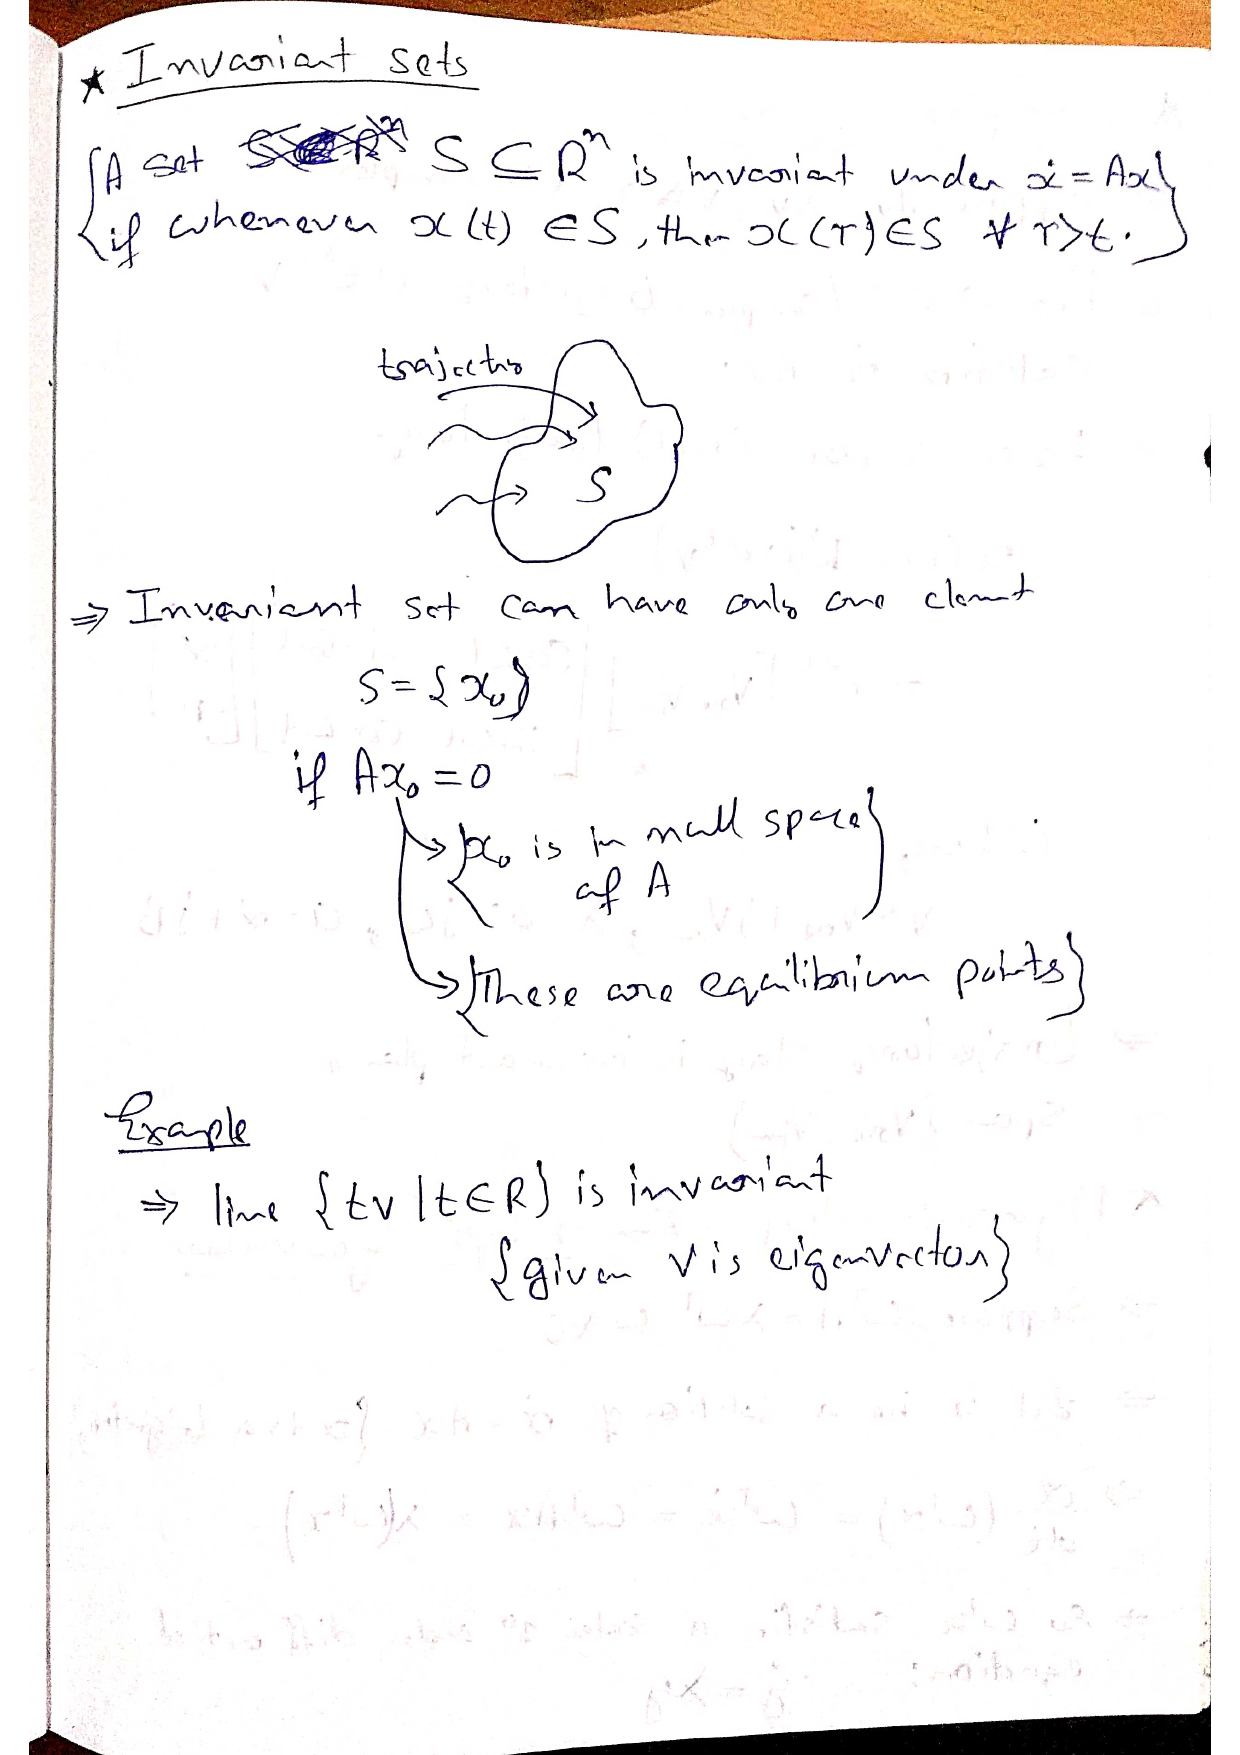 ★ Invariant sets
{A set S ⊆ R^n is invariant under ẋ = Ax}
{if whenever x(t) ∈ S, then x(τ) ∈ S ∀ τ>t.}
trajectro
S
⇒ Invariant set can have only one elemnt
S = {x₀}
if Ax₀ = 0
→ {x₀ is in null space}
of A
→ {These are equilibrium points}
Example
⇒ line {tv | t ∈ R} is invariant
{given v is eigenvector}